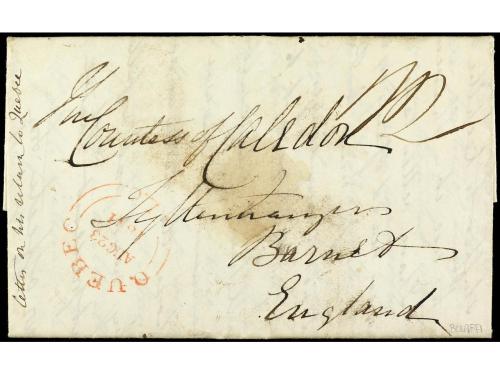 The
Countess of Caledon
Tyttenhanger
Barnet
England
letter on his return to Quebec
QUEBEC
AU 23